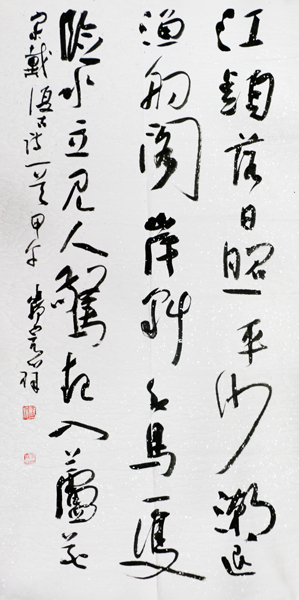 江頭落日照平沙潮退
漁船閣岸斜白鳥一隻
臨水立見人驚起入蘆花
宋戴復古詩一首甲午